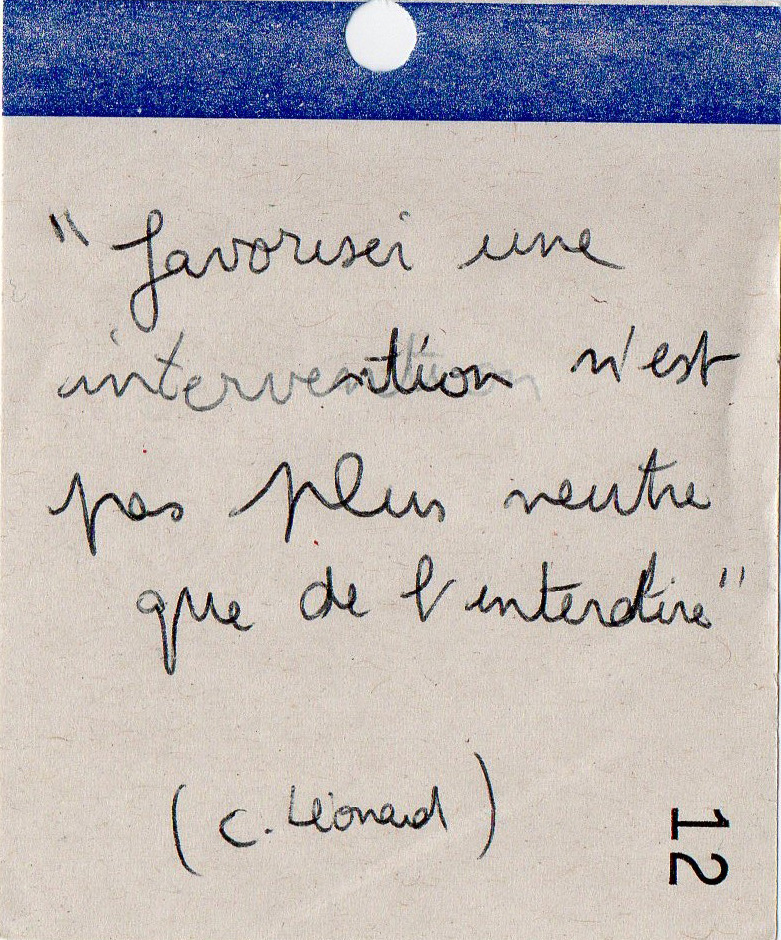 "favoriser une
intervention n'est
pas plus neutre
que de l'interdire"
(C. Léonard)
12